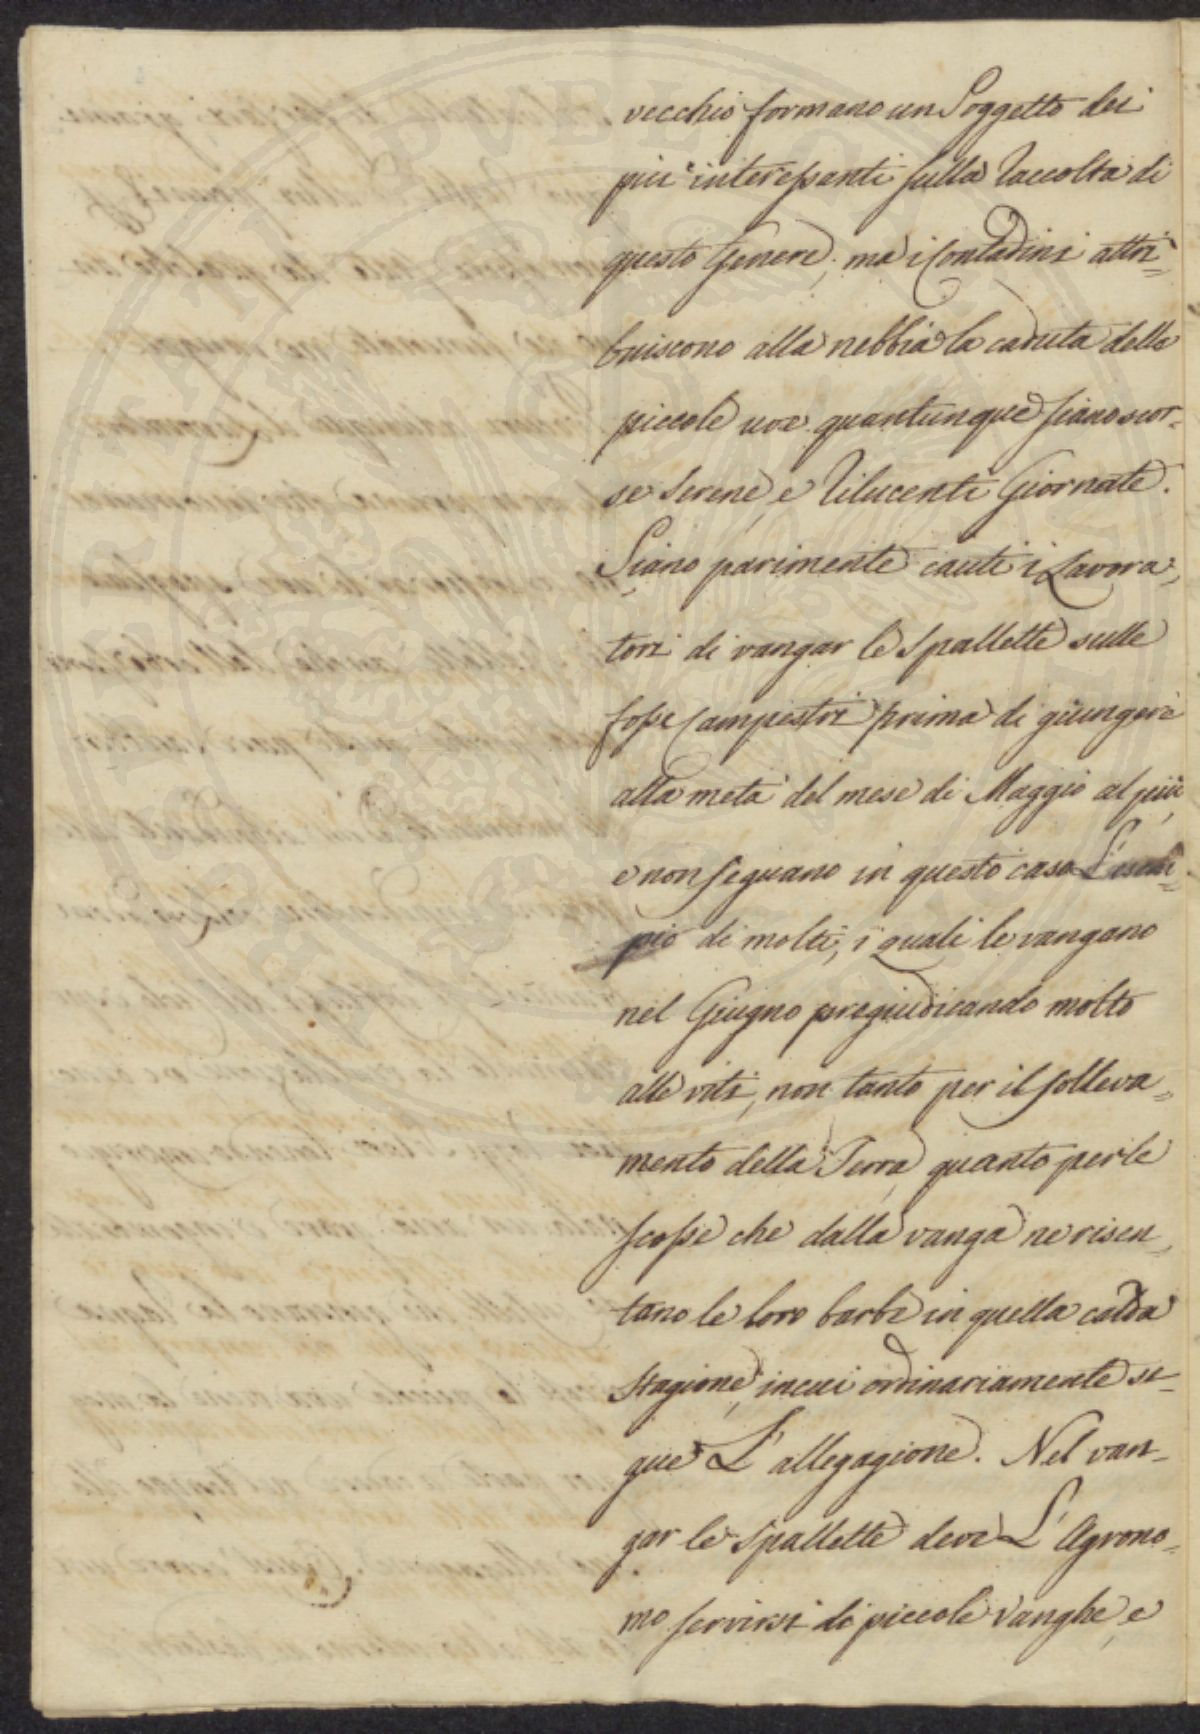 vecchio formano un Soggetto dei
più interessanti sulla Raccolta di
questo Genere, ma i Contadini attri=
buiscono alla nebbia la caduta delle
piccole uve quantunque siano scor=
se Serene, e Rilucenti Giornate.
Siano parimente cauti i Lavora=
tori di vangar le Spallette sulle
fosse Campestri prima di giungere
alla metà del mese di Maggio al più,
e non seguano in questo caso L'esem=
pio di molti, i quali le vangano
nel Giugno pregiudicando molto
alle viti, non tanto per il solleva=
mento della Terra, quanto per le
scosse che dalla vanga ne risen=
tano le loro barbe in quella calda
Stagione, in cui ordinariamente se=
gue L'allegagione. Nel van=
gar le Spallette deve L'Agrono=
mo servirsi di piccole Vanghe, e